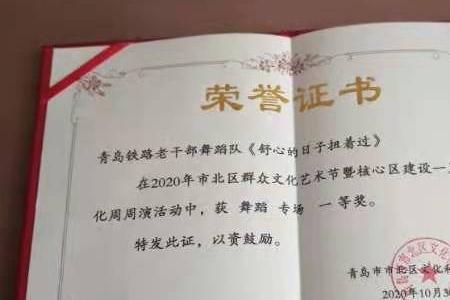 荣誉证书
青岛铁路老干部舞蹈队《舒心的日子担着过》
在2020年市北区群众文化艺术节暨核心区建设一
化周周演活动中，获 舞蹈 专场 一 等奖。
特发此证，以资鼓励。
青岛市市北区文化和
2020年10月30